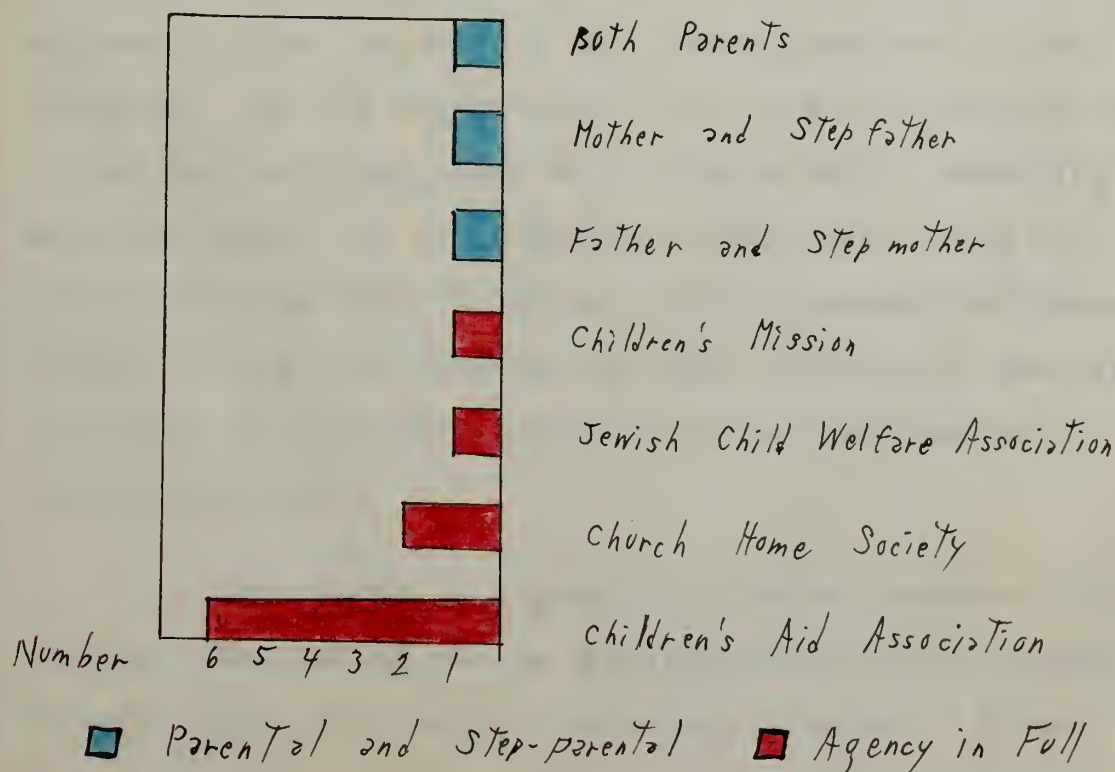 Both Parents
Mother and Step father
Father and Step mother
Children's Mission
Jewish Child Welfare Association
Church Home Society
Children's Aid Association
Number 6 5 4 3 2 1
Parental and Step-parental Agency in Full